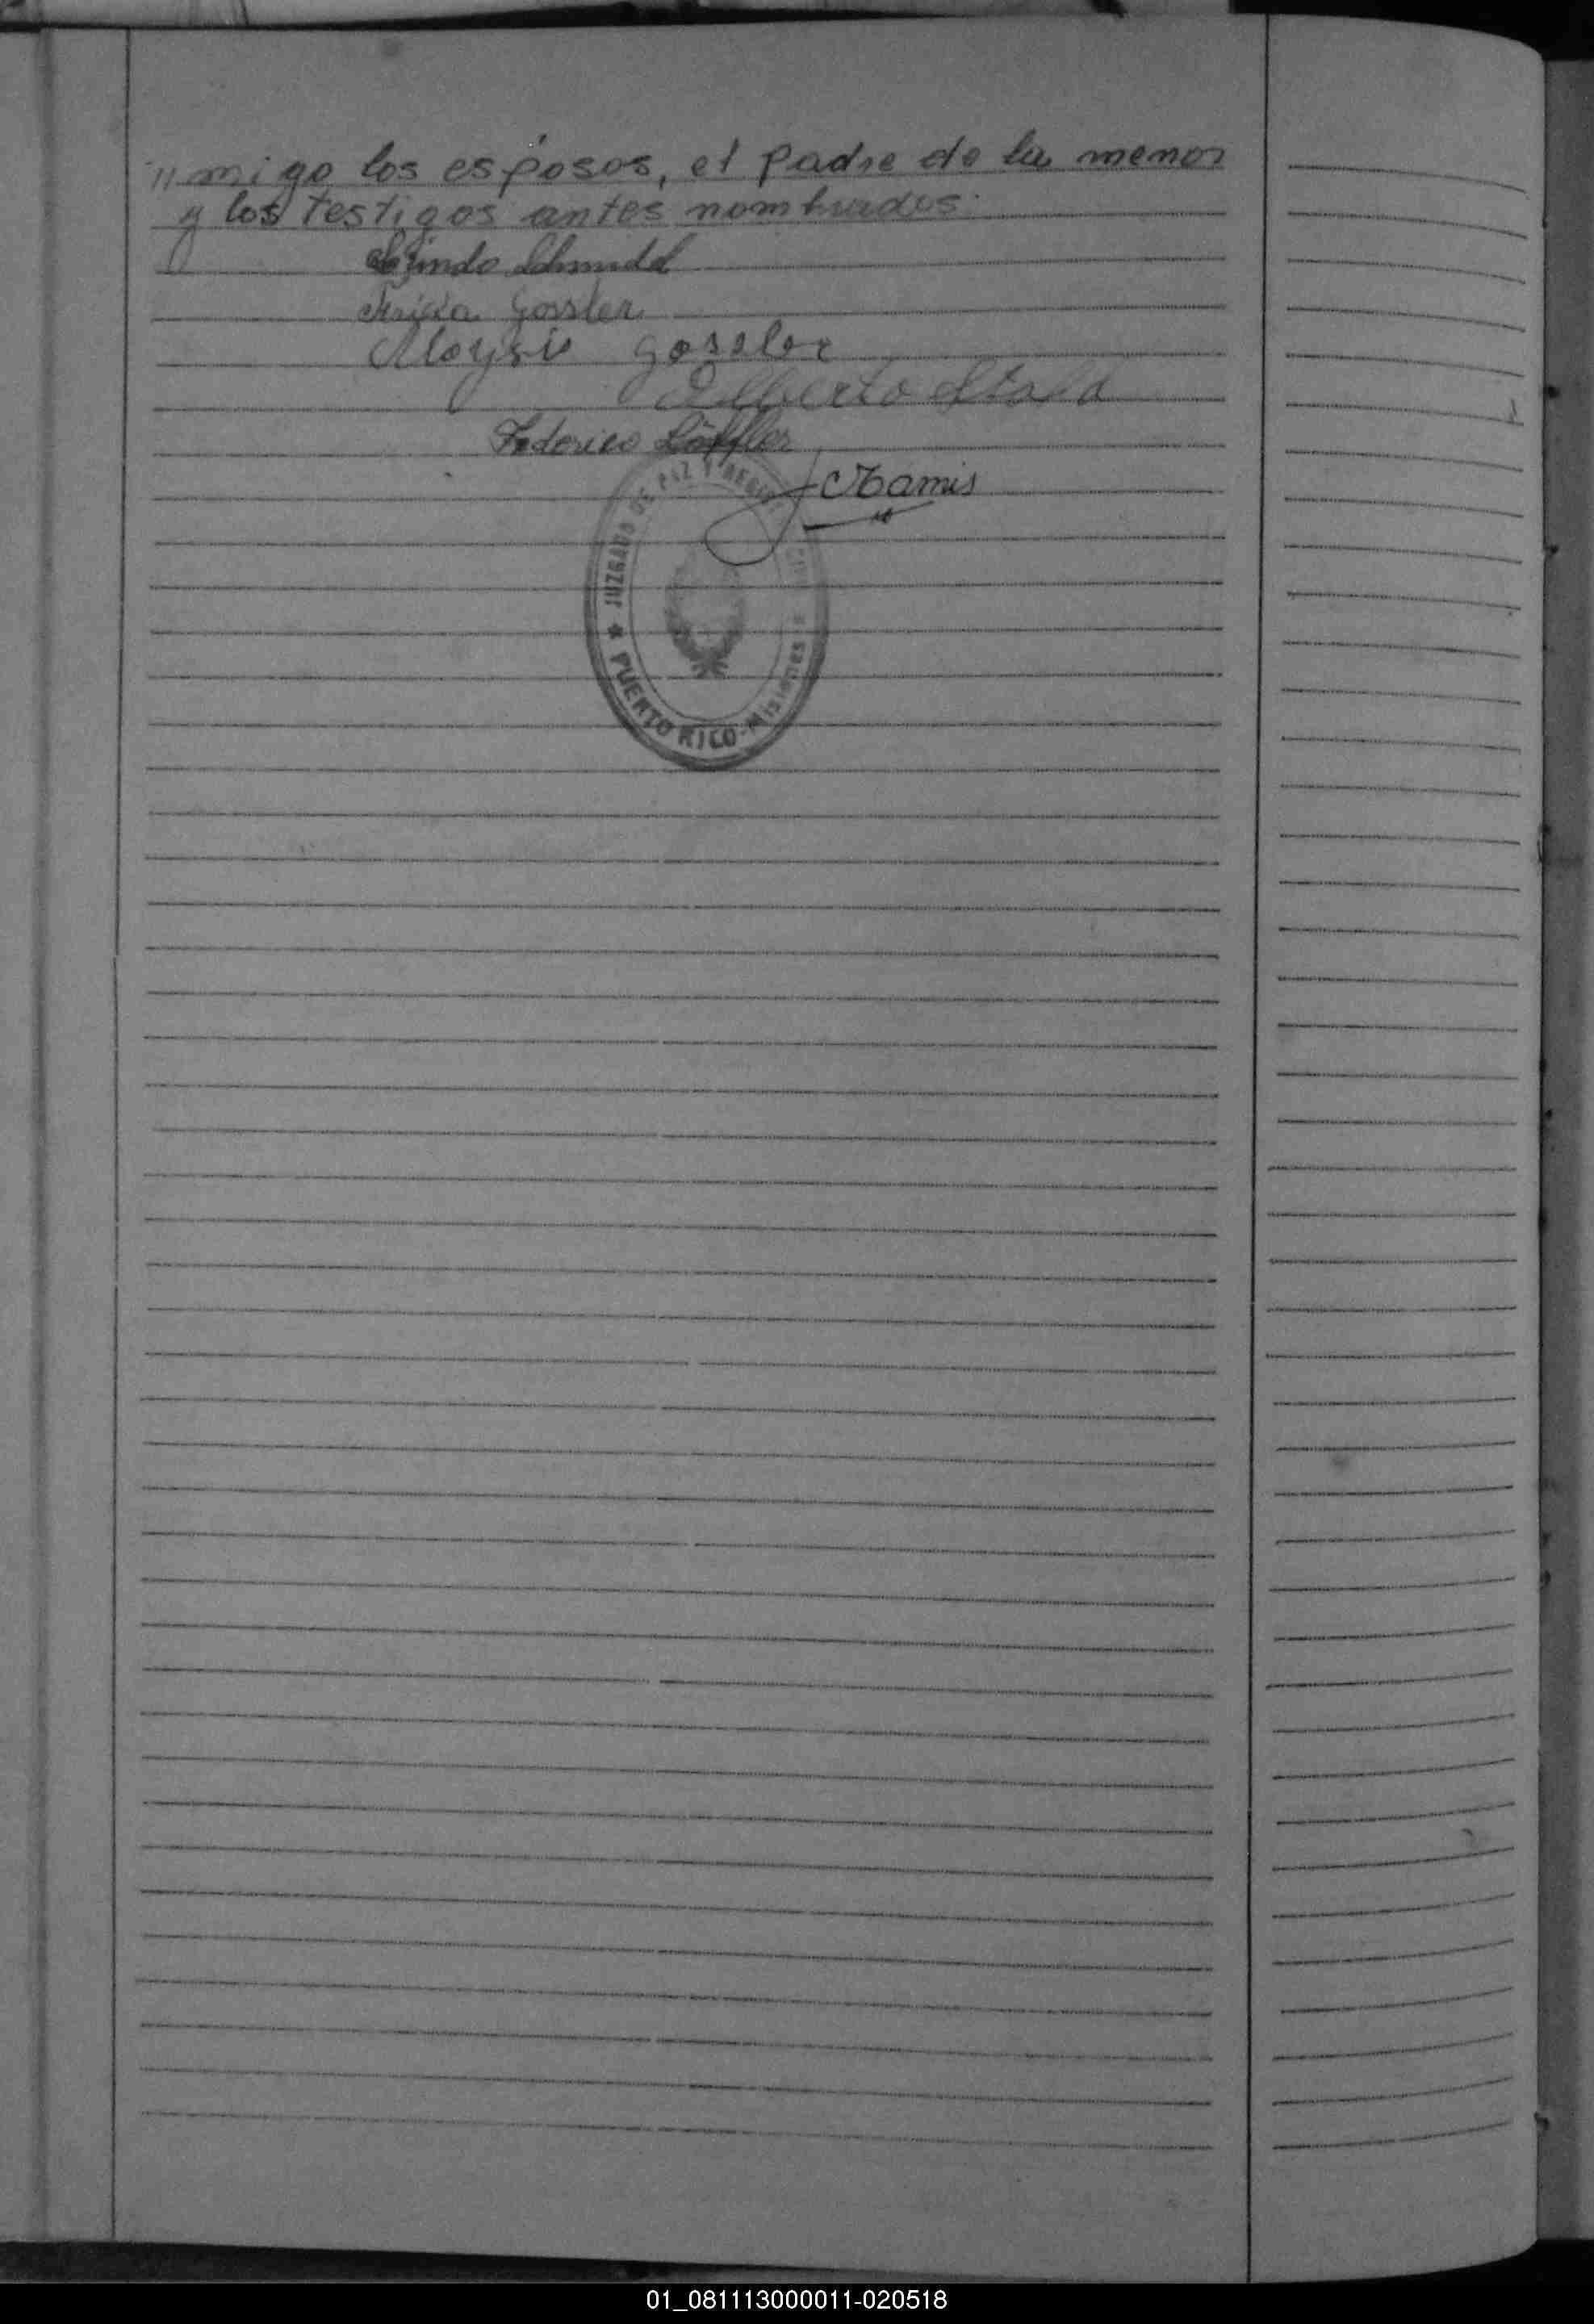 "migo los esposos, el padre de la menor
y los testigos antes nombrados.
Schmidt
Gossler
Aloysio Gossler
Alberto
Federico Löffler
JUZGADO DE PAZ Y REGISTRO CIVIL
PUERTO RICO - Misiones
01_081113000011-020518